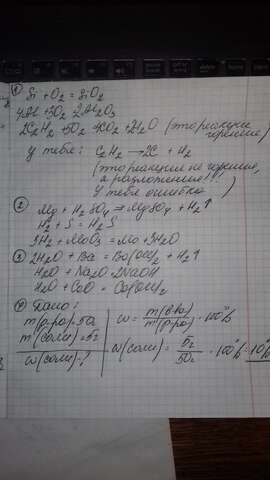 ① Si + O₂ = SiO₂
4Al + 3O₂ = 2Al₂O₃
2C₂H₂ + 5O₂ = 4CO₂ + 2H₂O (это реакции горения)
У тебя: C₂H₂ → 2C + H₂
(это реакция не горения,
а разложения!
У тебя ошибка..)
② Mg + H₂SO₄ = MgSO₄ + H₂↑
H₂ + S = H₂S
3H₂ + MoO₃ = Mo + 3H₂O
③ 2H₂O + Ba = Ba(OH)₂ + H₂↑
H₂O + Na₂O = 2NaOH
H₂O + CaO = Ca(OH)₂
④ Дано:
m(р-ра) = 50г
m(соли) = 5г
w(соли) - ?
w = m(в-ва) / m(р-ра) · 100%
w(соли) = 5г / 50г · 100% = 10%